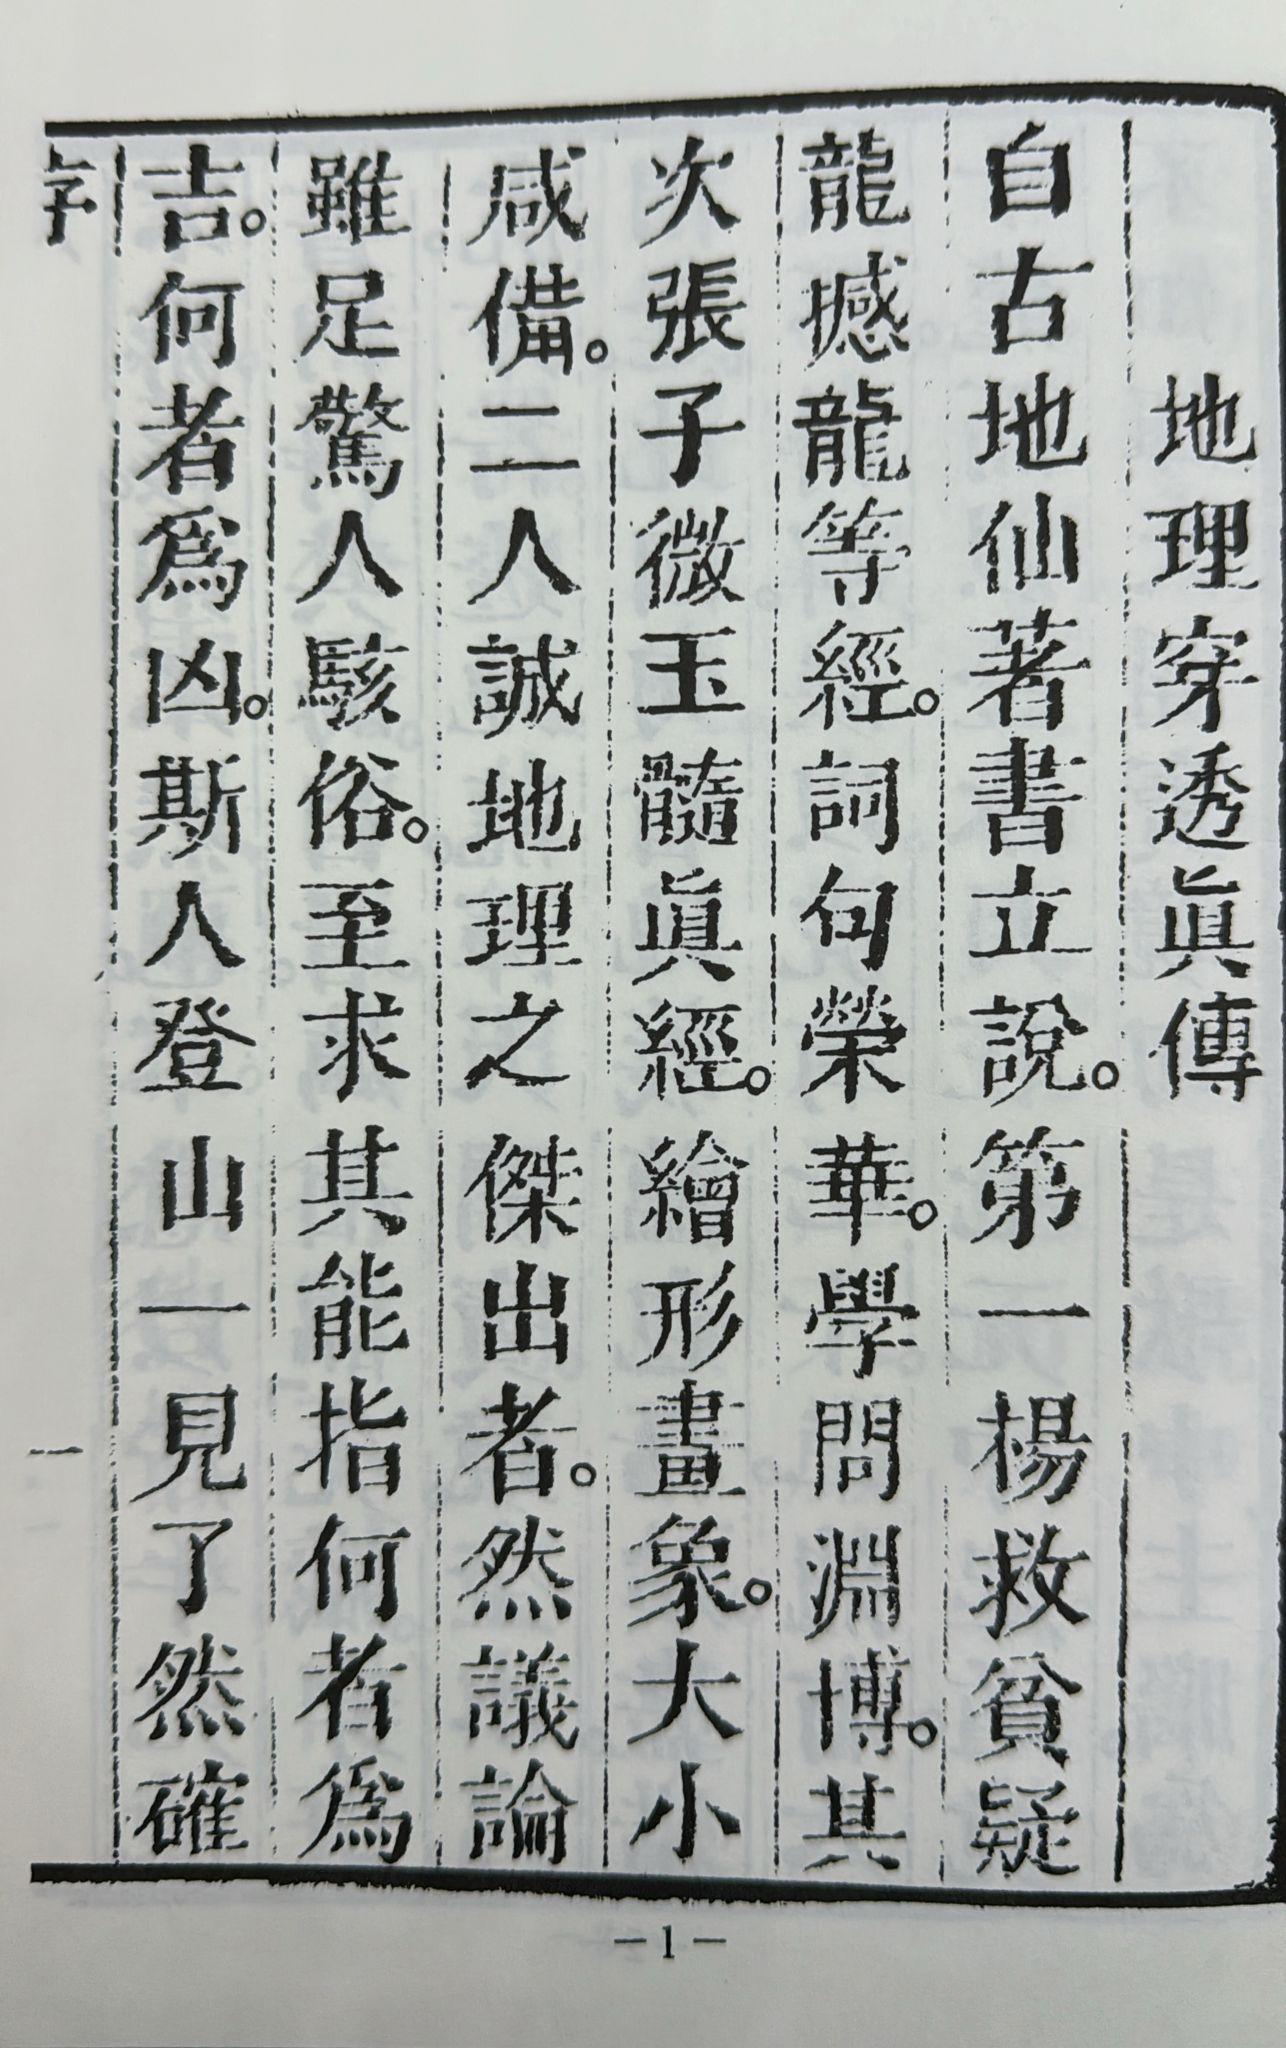 地理穿透眞傳
自古地仙著書立說。第一楊救貧疑
龍撼龍等經。詞句榮華。學問淵博。其
次張子微玉髓眞經。繪形畫象。大小
咸備。二人誠地理之傑出者。然議論
雖足驚人駭俗。至求其能指何者爲
吉。何者爲凶。斯人登山一見了然確
序
一
-1-